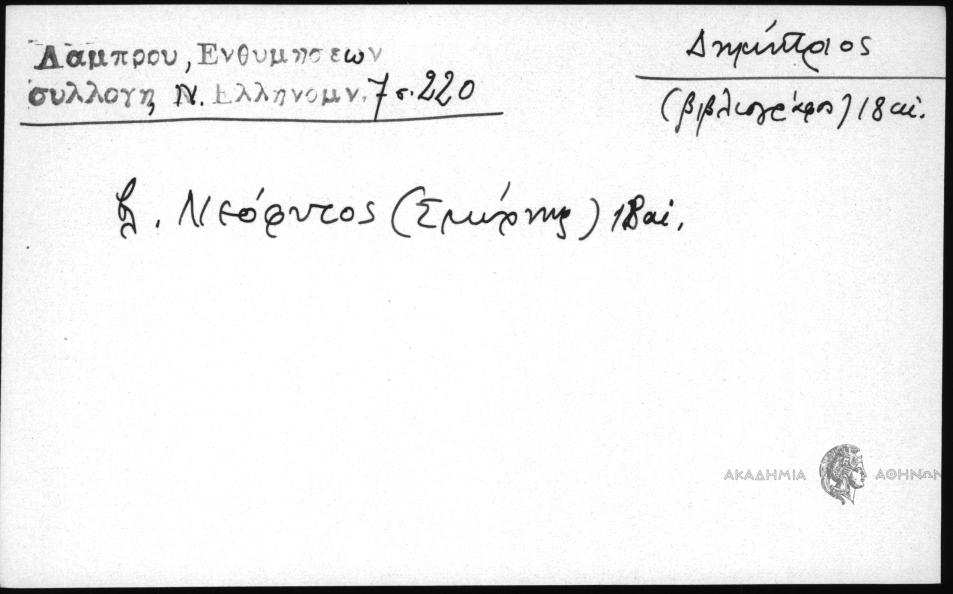 Λαμπρου, Ενθυμησεων
συλλογη Ν. Ελληνομν. 7 σ. 220
Δημήτριος
(βιβλιογράφος) 18 αἰ.
βλ. Νεόφυτος (Σμύρνης) 18 αἰ.
ΑΚΑΔΗΜΙΑ ΑΘΗΝΩΝ